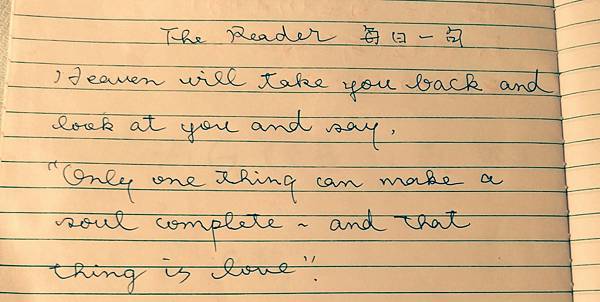 The Reader 每日一句
Heaven will take you back and
look at you and say,
"Only one thing can make a
soul complete ~ and that
thing is love".